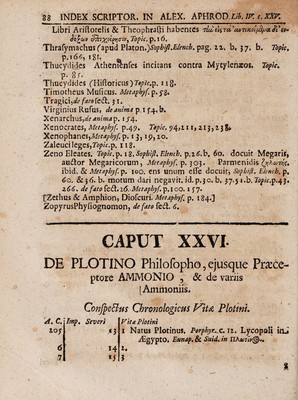 88 INDEX SCRIPTOR. IN ALEX. APHROD. Lib. IV. c. XXV.
Libri Aristotelis & Theophrasti habentes
Topic. p. 16.
Thrasymachus (apud Platon.) Sophist. Elench. pag. 22. b. 37. b. Topic.
p. 166, 181.
Thucydides Atheniensis incitans contra Mytylenæos. Topic.
p. 85.
Thucydides (Historicus) Topic. p. 118.
Timotheus Musicus. Metaphys. p. 58.
Tragici, de fato sect. 31.
Virginius Rufus. de anima p. 154. b.
Xenarchus, de anima p. 154.
Xenocrates, Metaphys. p. 49. Topic. 94, 211, 213, 238.
Xenophanes, Metaphys. p. 13, 19, 20.
Zaleuci leges, Topic. p. 118.
Zeno Eleates, Topic. p. 18. Sophist. Elench. p. 26. b. 60. docuit Megaris,
auctor Megaricorum, Metaphys. p. 303. Parmenidis
ibid. & Metaphys. p. 100. ens unum esse docuit, Sophist. Elench. p.
60. & 36. b. motum dari negavit. id. p. 30. b. 37. 51. b. Topic. p. 43.
266. de fato sect. 26. Metaphys. p. 100. 157.
[Zethus & Amphion, Dioscuri. Metaphys. p. 184.]
Zopyrus Physiognomon, de fato sect. 6.
CAPUT XXVI.
DE PLOTINO Philosopho, ejusque Præce-
ptore AMMONIO, & de variis
Ammoniis.
Conspectus Chronologicus Vitæ Plotini.
A. C. Imp. Severi Vitæ Plotini
205 13 1 Natus Plotinus. Porphyr. c. 12. Lycopoli in
Ægypto. Eunap. & Suid. in Πλωτῖν@.
6 14 2
7 15 3